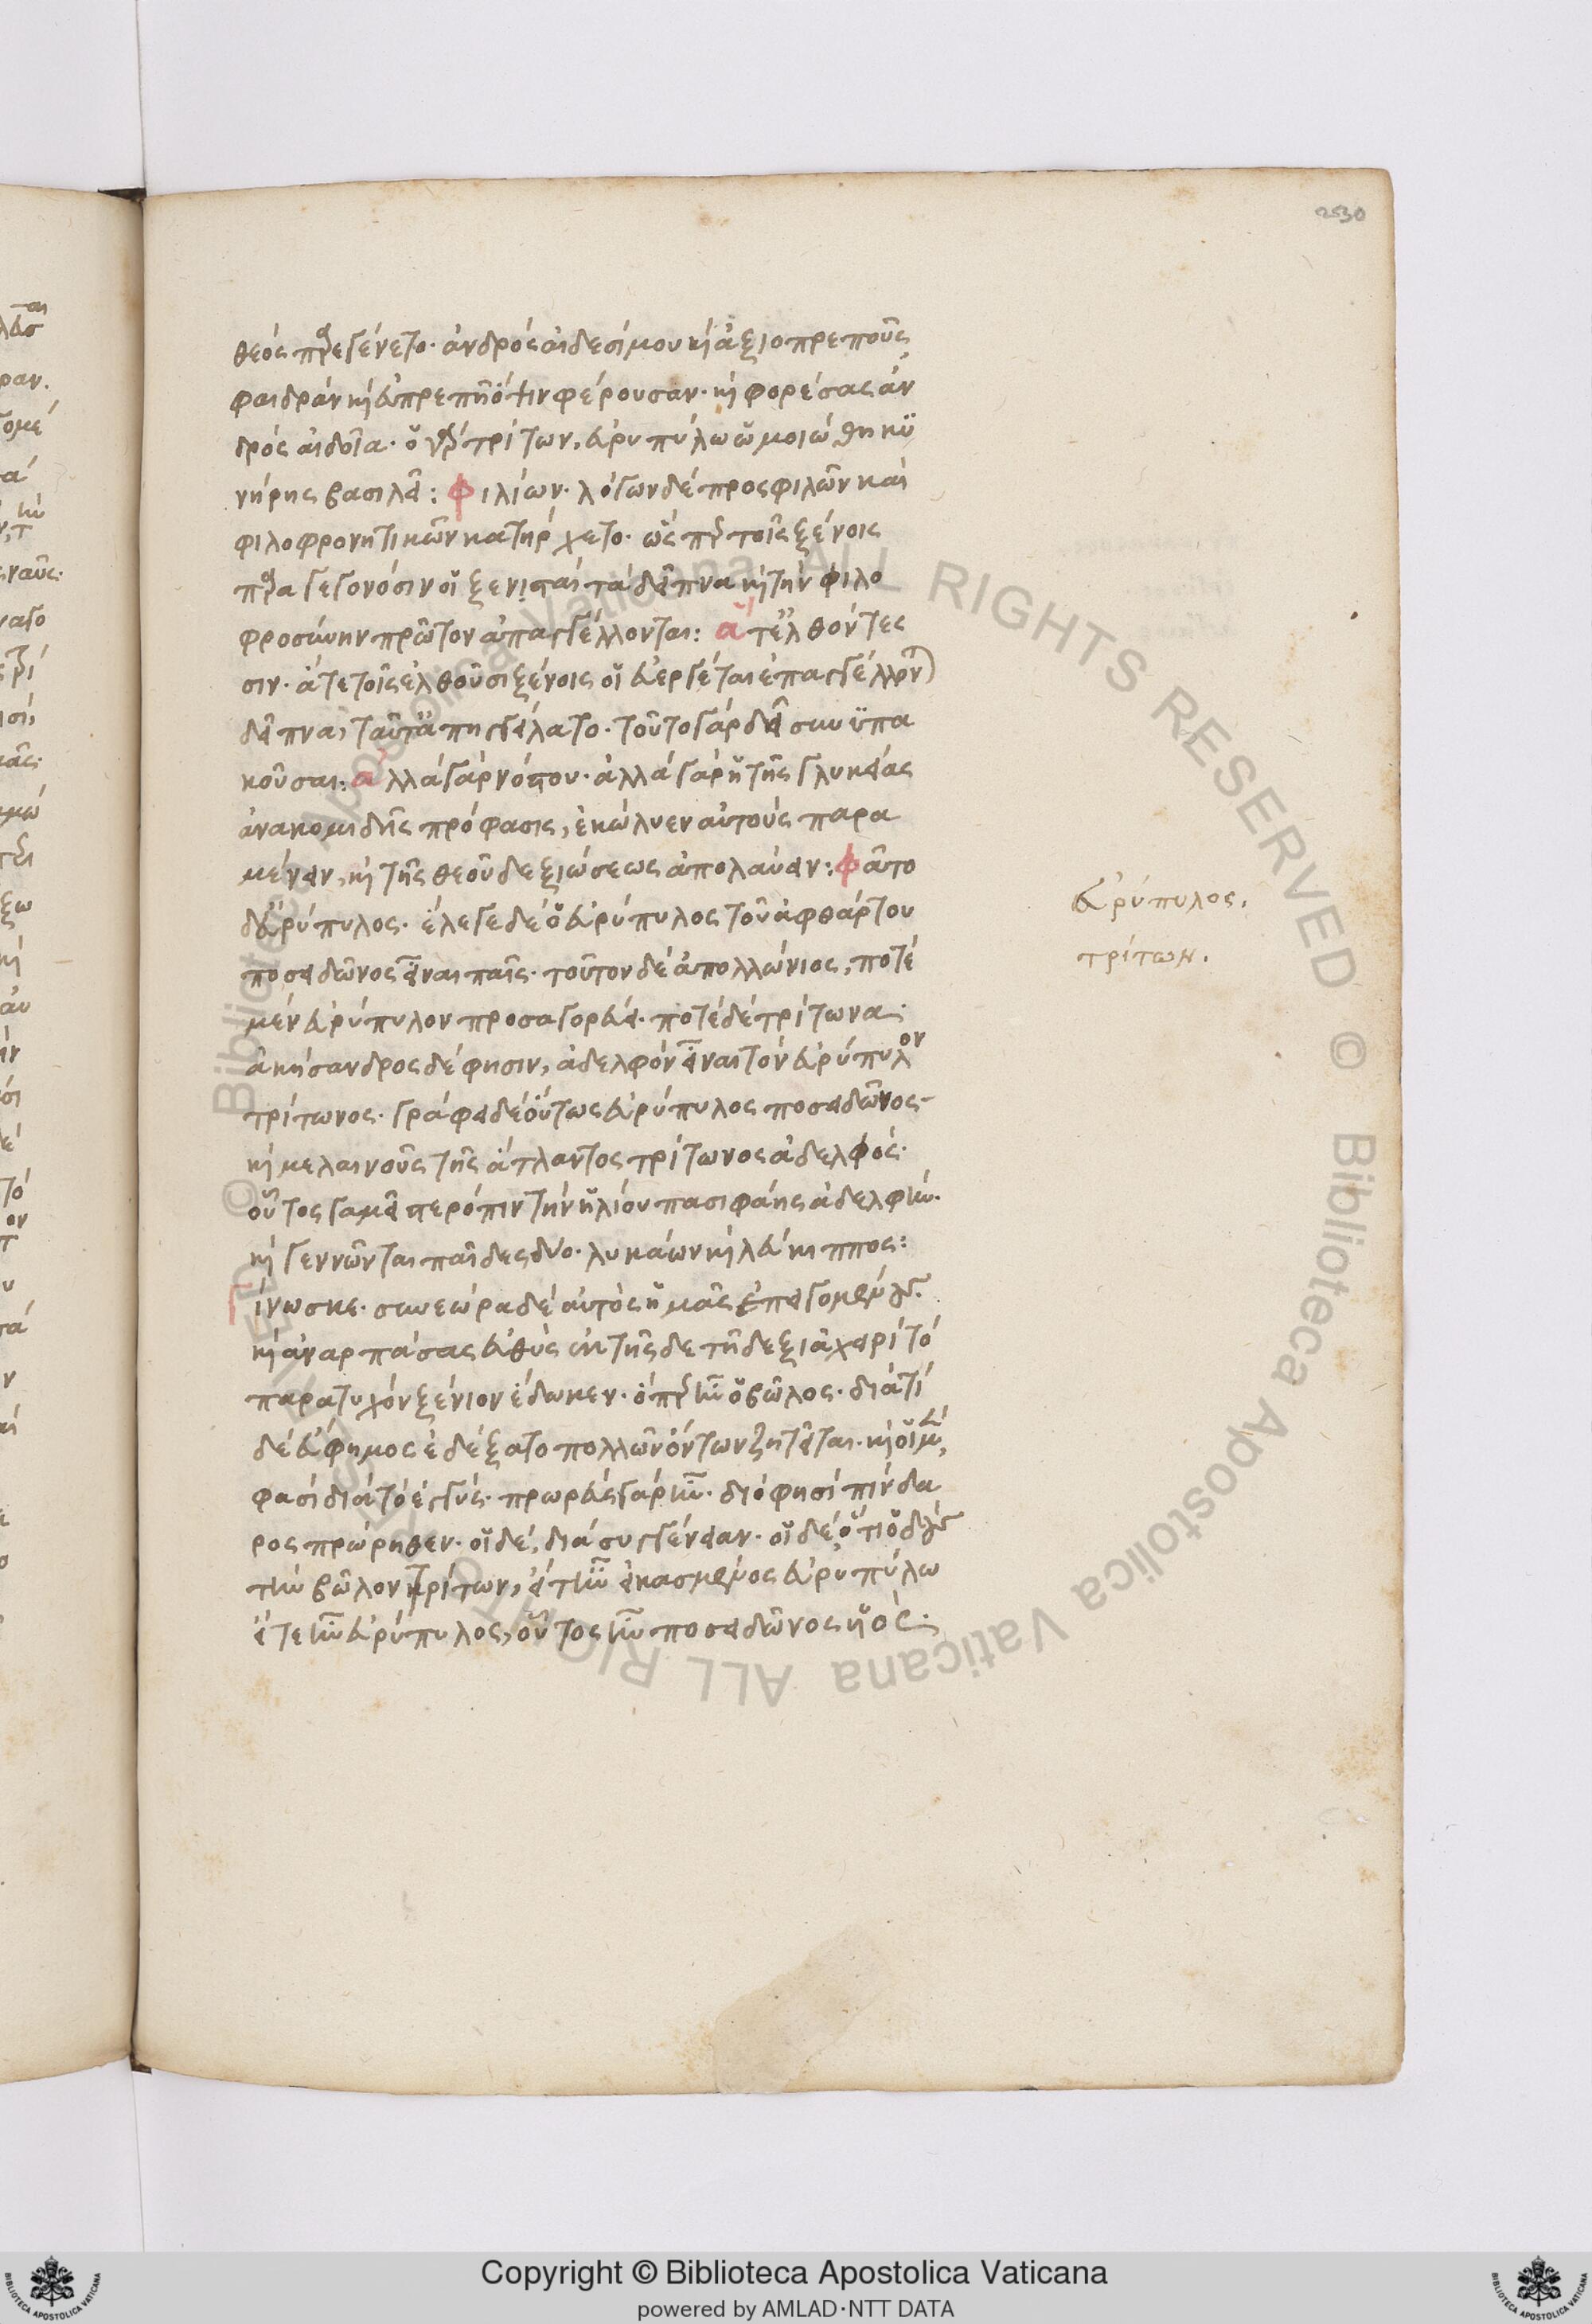 2530
θεός παρεγένετο· ἀνδρὸς αἰδεσίμου καὶ ἀξιοπρεποῦς
φαιδρὰν καὶ εὐπρεπῆ ὄψιν φέρουσαν· καὶ φορέσας ἀν
δρὸς αἰδοῖα· ὁ γὰρ τρίτων, εὐρυπύλω ὡμοιώθη κυ
νήρης βασιλεῖ: φιλίων· λόγων δὲ προσφιλῶν καὶ
φιλοφρονητικῶν κατήρχετο· ὡς περ τοῖς ξένοις
παραγεγονόσιν οἱ ξενισταὶ τὰ δεῖπνα καὶ τὴν φιλο
φροσύνην πρῶτον ἀπαγγέλλονται: ἅ τ' ἐλθόντες
σιν· ἅτε τοῖς ἐλθοῦσι ξένοις οἱ εὐεργέται ἐπαγγέλλουσι
δεῖπνα, ταῦτα ἐπηγγείλατο· τοῦτο γὰρ δεῖ συνυπα
κοῦσαι: ἀλλὰ γὰρ νόστου· ἀλλὰ γὰρ ἡ τῆς γλυκείας
ἀνακομιδῆς πρόφασις, ἐκώλυεν αὐτοὺς παρα
μένειν, καὶ τῆς θεοῦ δεξιώσεως ἀπολαύειν: φάτο
δ' εὐρύπυλος· ἔλεγε δὲ ὁ εὐρύπυλος τοῦ ἀφθάρτου
ποσειδῶνος εἶναι παῖς· τοῦτον δὲ ἀπολλώνιος, ποτὲ
μὲν εὐρύπυλον προσαγορεύει· ποτὲ δὲ τρίτωνα·
ἀκήσανδρος δὲ φησιν, ἀδελφὸν εἶναι τὸν εὐρύπυλον
τρίτωνος· γράφει δὲ οὕτως εὐρύπυλος ποσειδῶνος
καὶ κελαινοῦς τῆς ἄτλαντος τρίτωνος ἀδελφός·
οὗτος γαμεῖ στερόπην τὴν ἡλίου πασιφάης ἀδελφήν·
καὶ γεννῶνται παῖδες δύο· λυκάων καὶ λεύκιππος:
γίνωσκε· συνεώρα δὲ αὐτὸς ἡμᾶς ἐπειγομένους·
καὶ ἀναρπάσας εὐθὺς ἐκ τῆς δε τῆ δεξιᾶ χειρὶ τὸ
παρατυχὸν ξένιον ἔδωκεν· ὅπερ ἦν ὁ βῶλος· διατί
δὲ εὔφημος ἐδέξατο πολλῶν ὄντων ζητεῖται· καὶ οἱ μὲν,
φασὶ διὰ τὸ ἐγγύς· πρωρεὺς γὰρ ἦν· διό φησὶ πίνδα
ρος πρώρηθεν· οἱ δέ, διὰ συγγένειαν· οἱ δέ, ὅτι ὁ διδοὺς
τὴν βῶλον τρίτων, εἴτ' ἦν εἰκασμένος εὐρυπύλω
εἴτε ἦν εὐρύπυλος, οὗτος ἦν ποσειδῶνος υἱός·
εὐρύπυλος.
τρίτων.
© Biblioteca Apostolica Vaticana ALL RIGHTS RESERVED
© Biblioteca Apostolica Vaticana ALL RIGHTS RESERVED
Copyright © Biblioteca Apostolica Vaticana
powered by AMLAD·NTT DATA